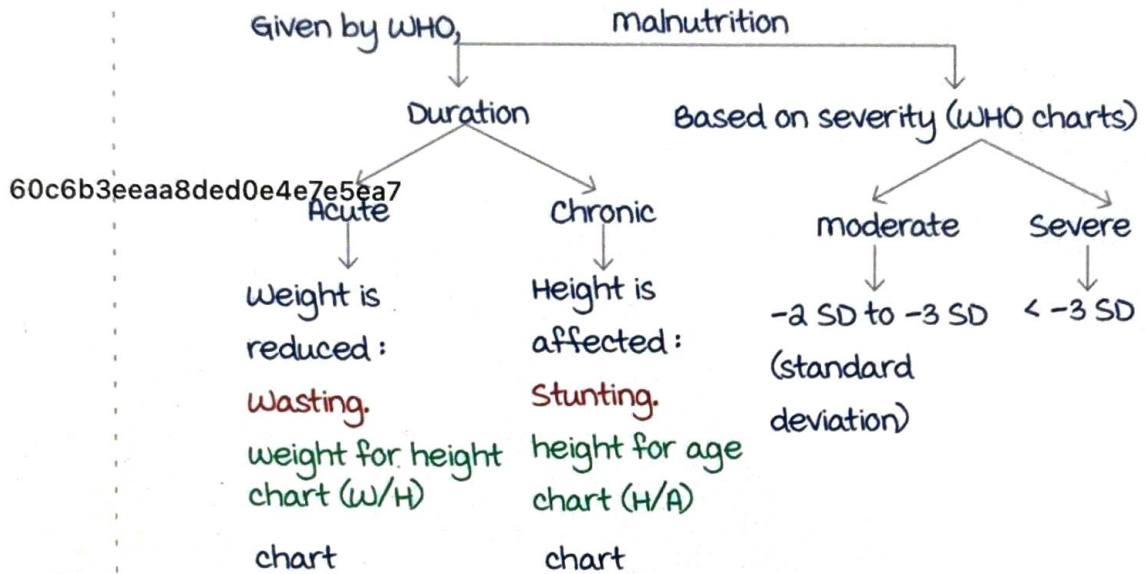 Given by WHO, malnutrition
Duration
Based on severity (WHO charts)
60c6b3eeaa8ded0e4e7e5ea7
Acute
Chronic
moderate
Severe
Weight is
reduced:
Wasting.
weight for height
chart (W/H)
chart
Height is
affected:
Stunting.
height for age
chart (H/A)
chart
-2 SD to -3 SD
(standard
deviation)
< -3 SD